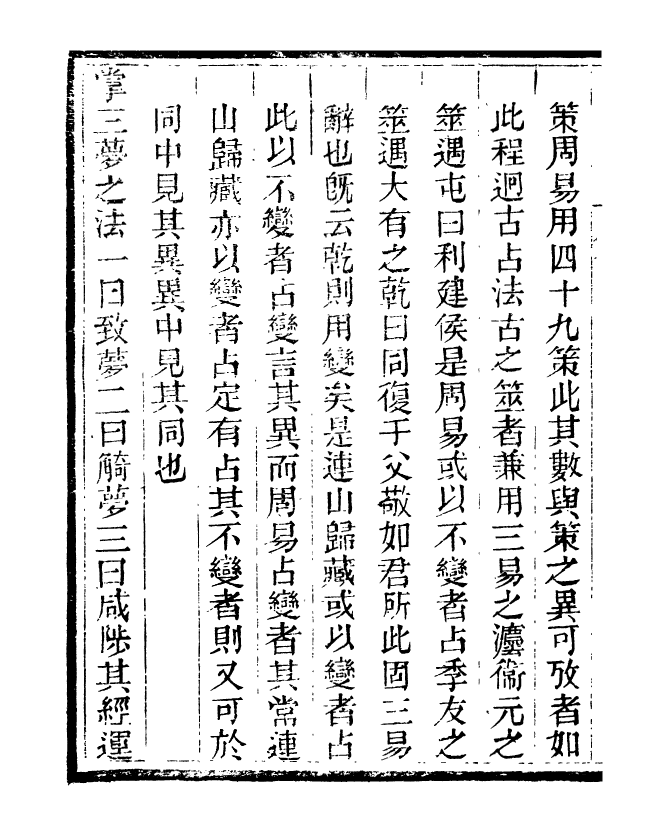 策周易用四十九策此其數與策之異可攷者如
此程迥古占法古之筮者兼用三易之灋衞元之
筮遇屯曰利建侯是周易或以不變者占季友之
筮遇大有之乾曰同復于父敬如君所此固三易
辭也旣云乾則用變矣是連山歸藏或以變者占
此以不變者占變言其異而周易占變者其常連
山歸藏亦以變者占定有占其不變者則又可於
同中見其異異中見其同也
掌三夢之法一曰致夢二曰觭夢三曰咸陟其經運